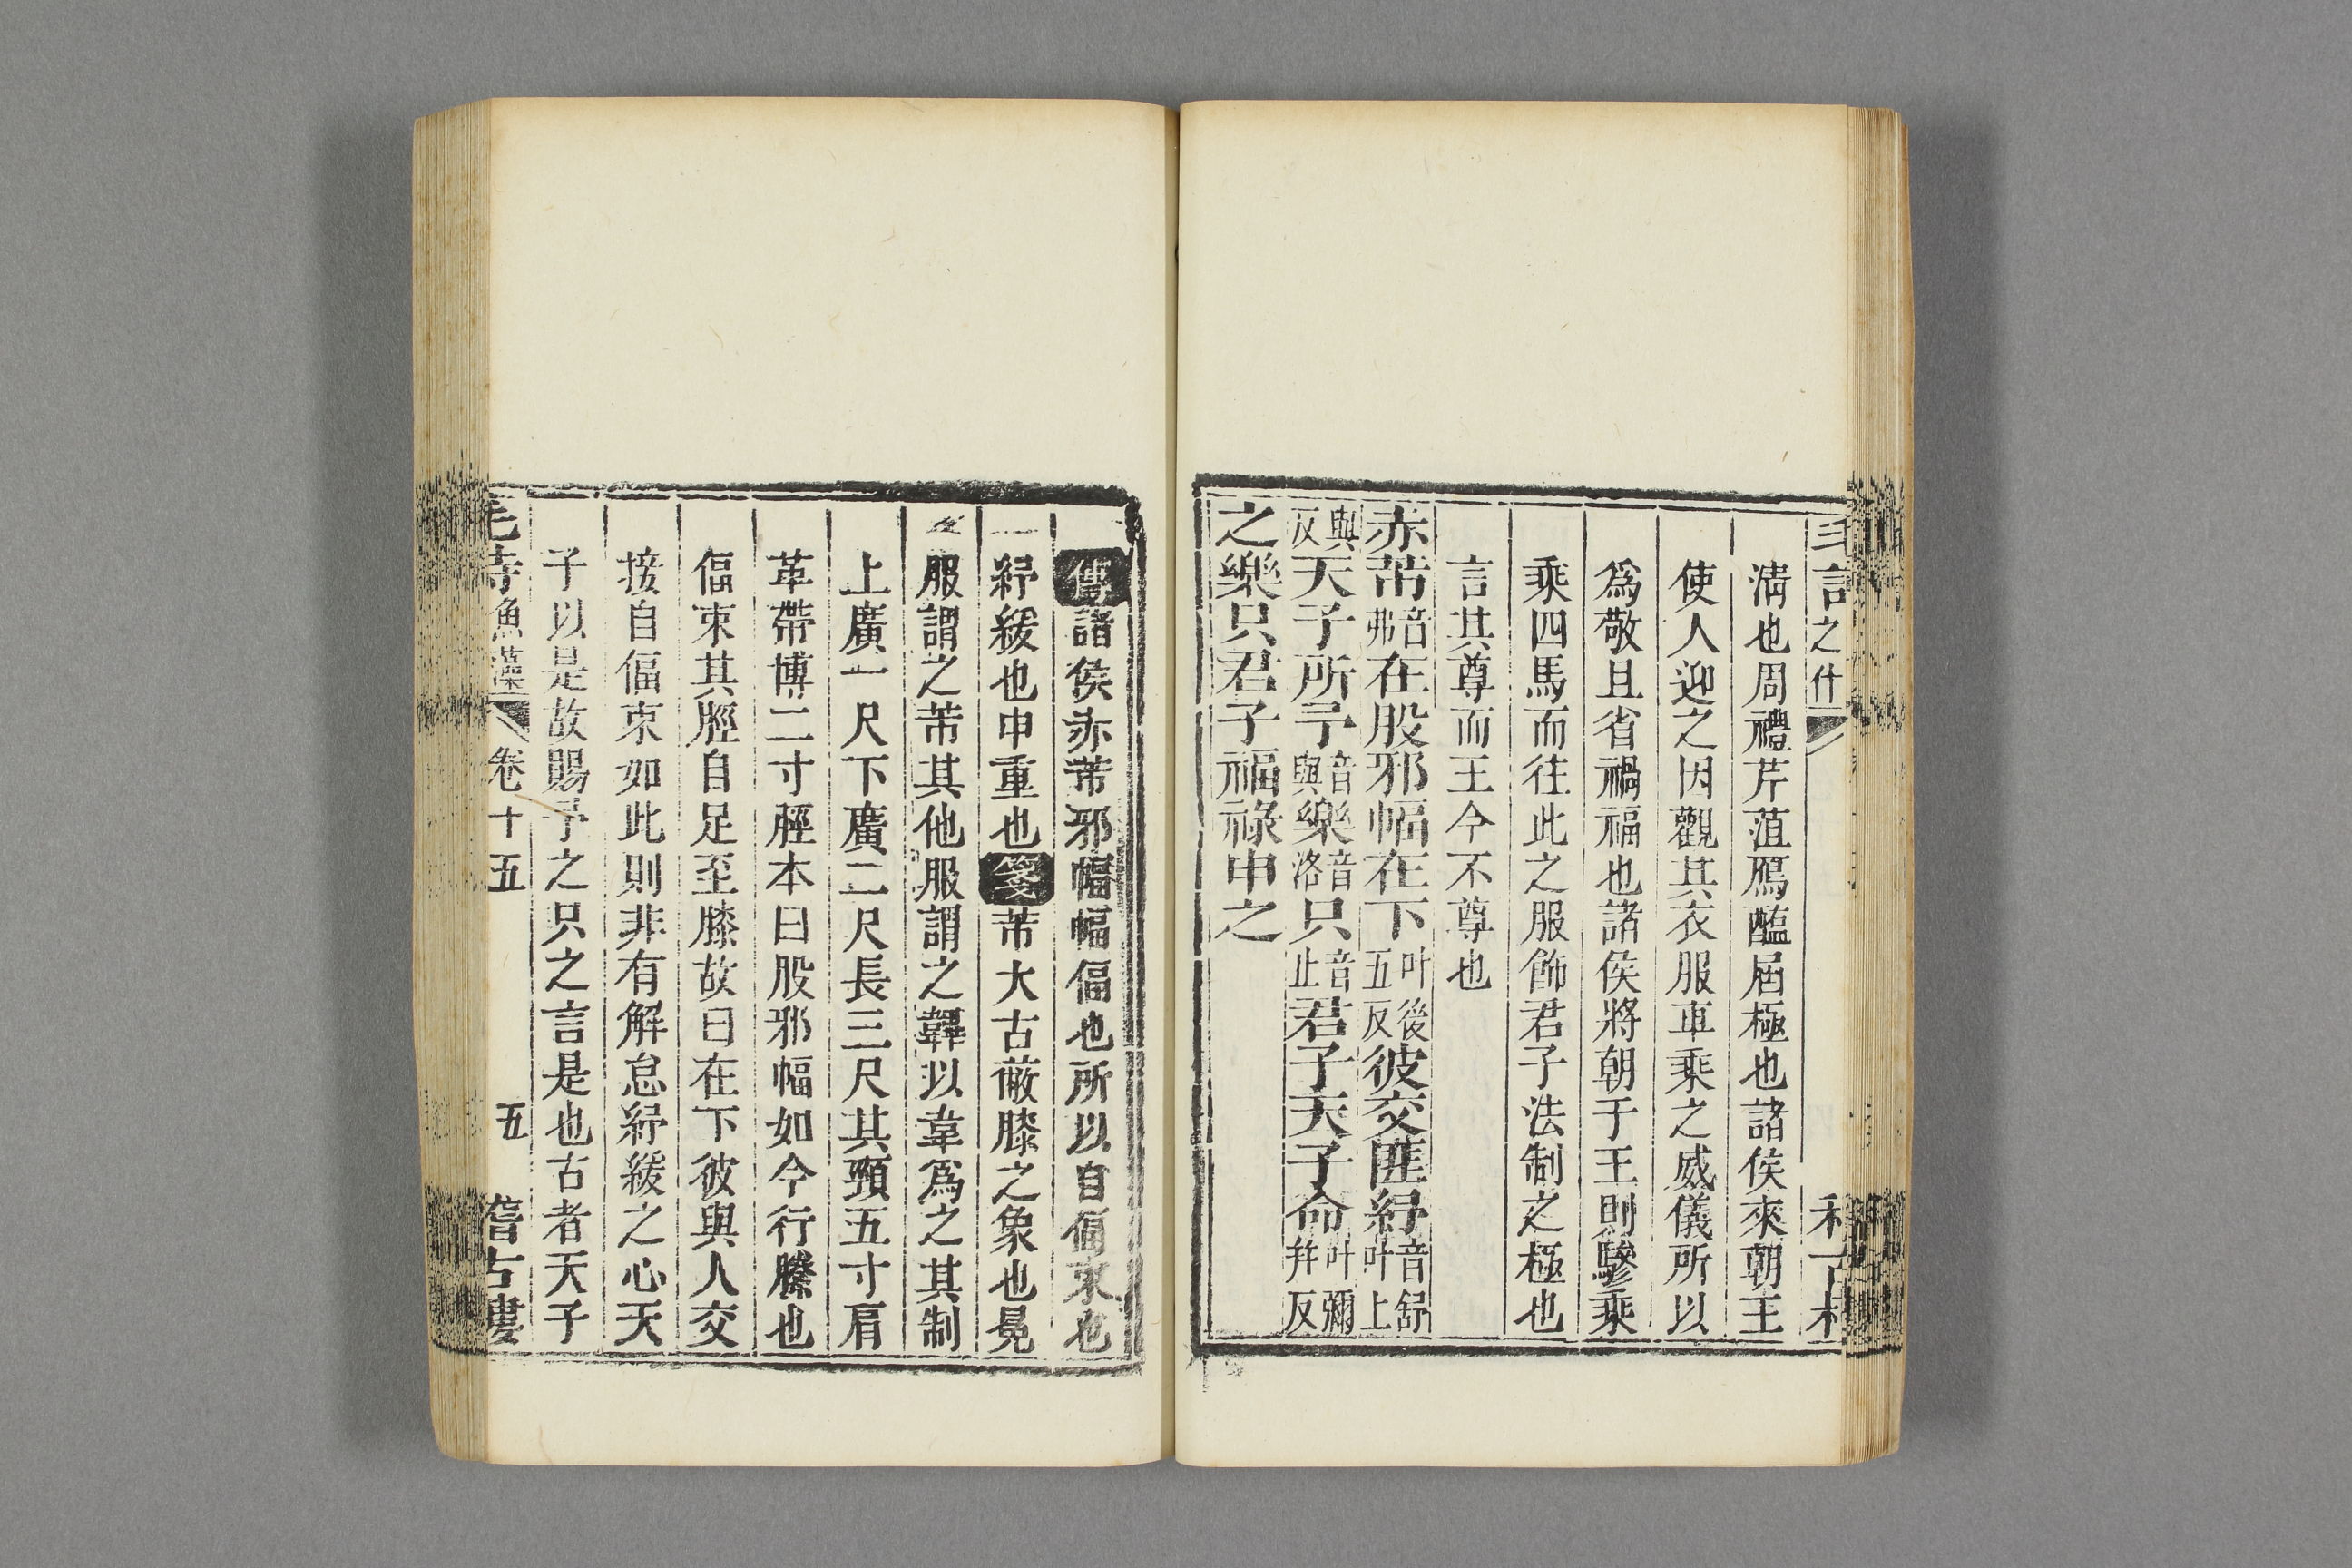 清也周禮芹菹鴈醢屆極也諸侯來朝王
使人迎之因觀其衣服車乘之威儀所以
爲敬且省禍福也諸侯將朝于王則驂乘
乘四馬而往此之服飾君子法制之極也
言其尊而王今不尊也
赤芾音弗在股邪幅在下叶後五反彼交匪紓音舒叶上
與反天子所予音與樂音洛只音止君子天子命叶彌幷反
之樂只君子福祿申之
傳諸侯赤芾邪幅幅偪也所以自偪束也
紓緩也申重也箋芾大古蔽膝之象也冕
服謂之芾其他服謂之韠以韋爲之其制
上廣一尺下廣二尺長三尺其頸五寸肩
革帶博二寸脛本曰股邪幅如今行縢也
偪束其脛自足至膝故曰在下彼與人交
接自偪束如此則非有解怠紓緩之心天
子以是故賜予之只之言是也古者天子
毛詩魚藻 卷十五 五 稽古樓